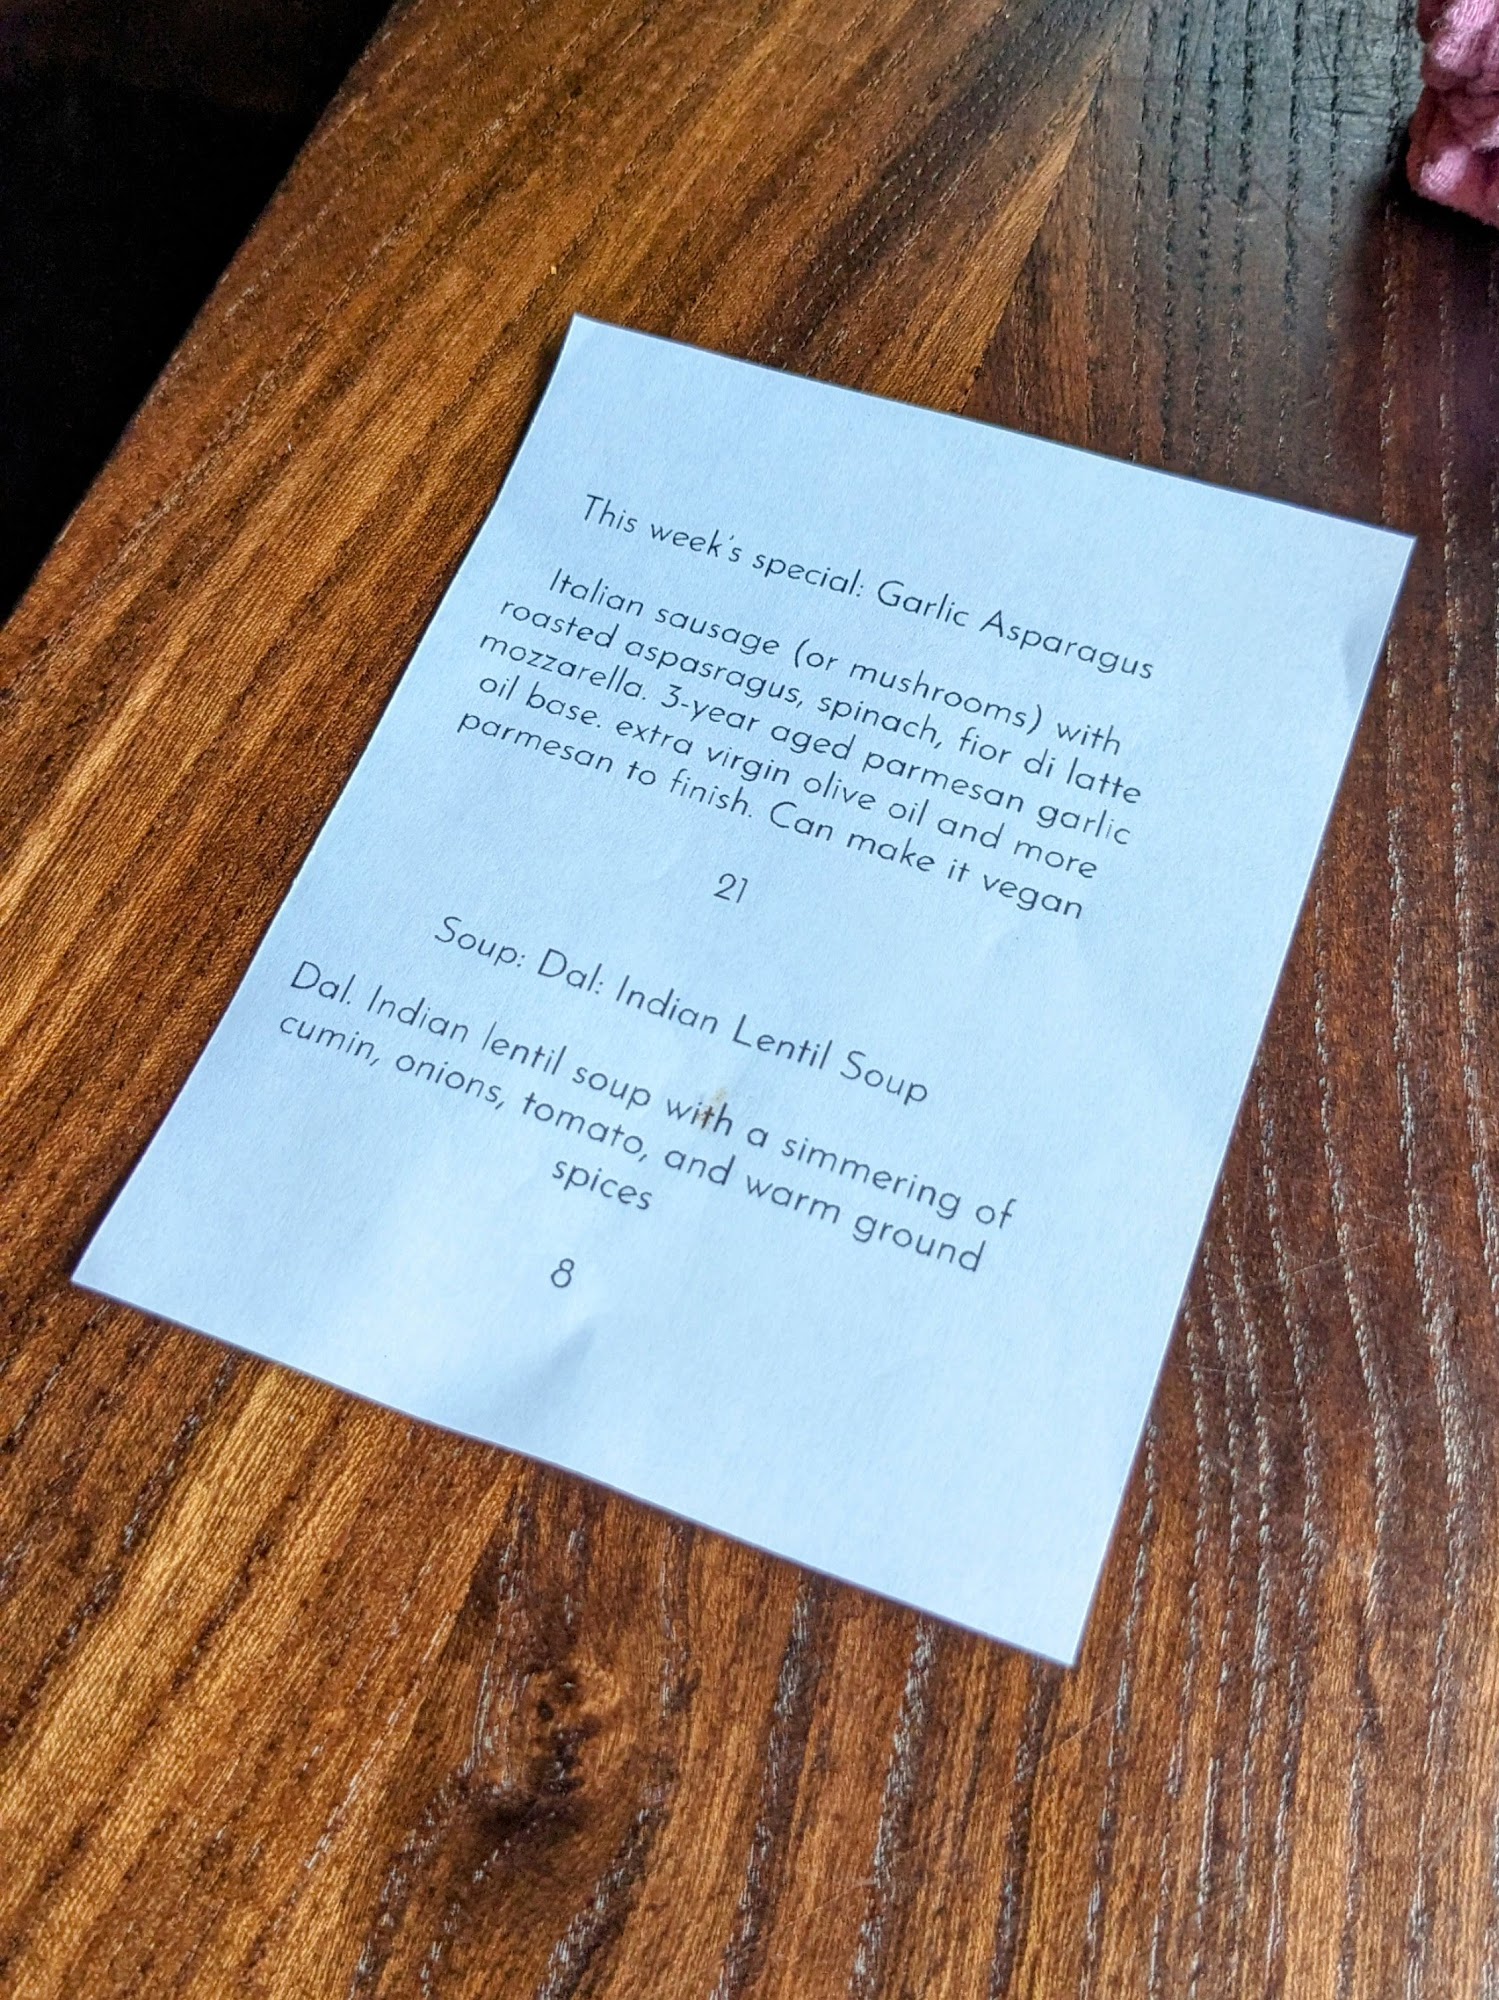 This week's special: Garlic Asparagus
Italian sausage (or mushrooms) with
roasted aspasragus, spinach, fior di latte
mozzarella. 3-year aged parmesan garlic
oil base. extra virgin olive oil and more
parmesan to finish. Can make it vegan
21
Soup: Dal: Indian Lentil Soup
Dal. Indian lentil soup with a simmering of
cumin, onions, tomato, and warm ground
spices
8